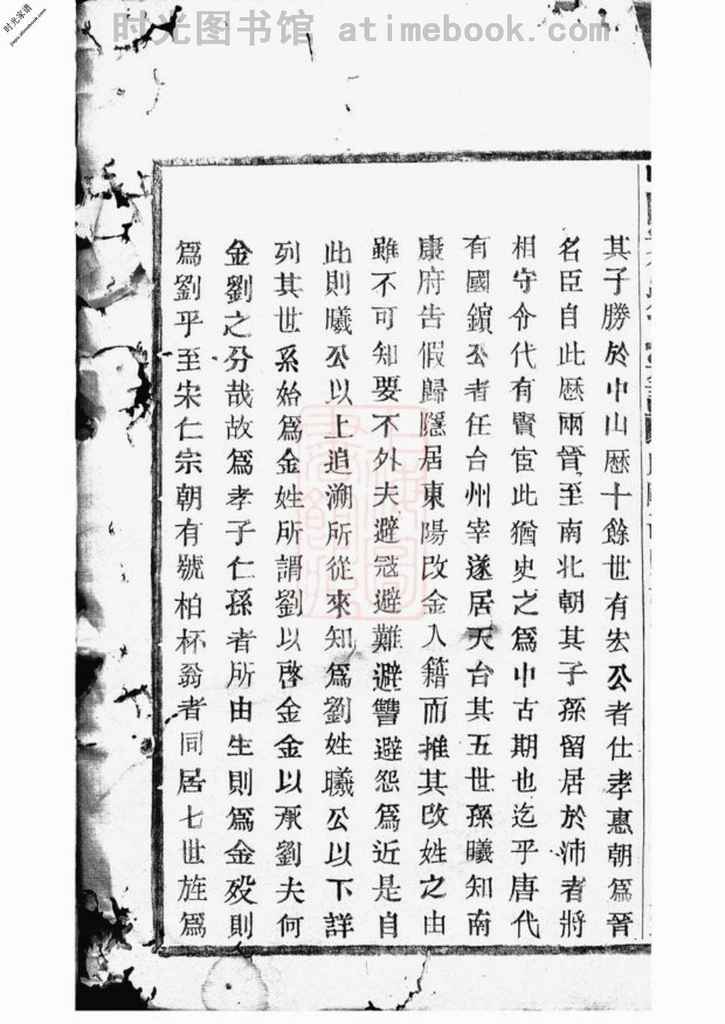 时光图书馆 atimebook.com
时光家谱
其子勝於中山歷十餘世有宏公者仕孝惠朝爲晉
名臣自此歷兩晉至南北朝其子孫留居於沛者將
相守令代有賢宦此猶史之爲中古期也迄乎唐代
有國鑌公者任台州宰遂居天台其五世孫曦知南
康府告假歸隱居東陽改金入籍而推其改姓之由
雖不可知要不外夫避冦避難避讐避怨爲近是自
此則曦公以上追溯所從來知爲劉姓曦公以下詳
列其世系始爲金姓所謂劉以啓金金以承劉夫何
金劉之分哉故爲孝子仁孫者所由生則爲金歿則
爲劉乎至宋仁宗朝有號柏杯翁者同居七世旌爲